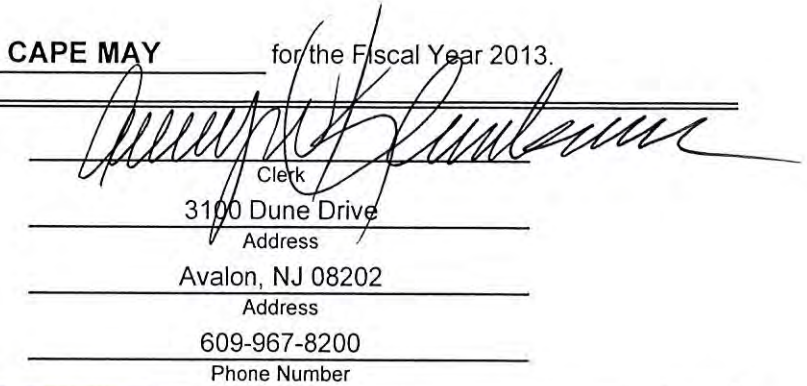 CAPE MAY for the Fiscal Year 2013.
Clerk
3100 Dune Drive
Address
Avalon, NJ 08202
Address
609-967-8200
Phone Number